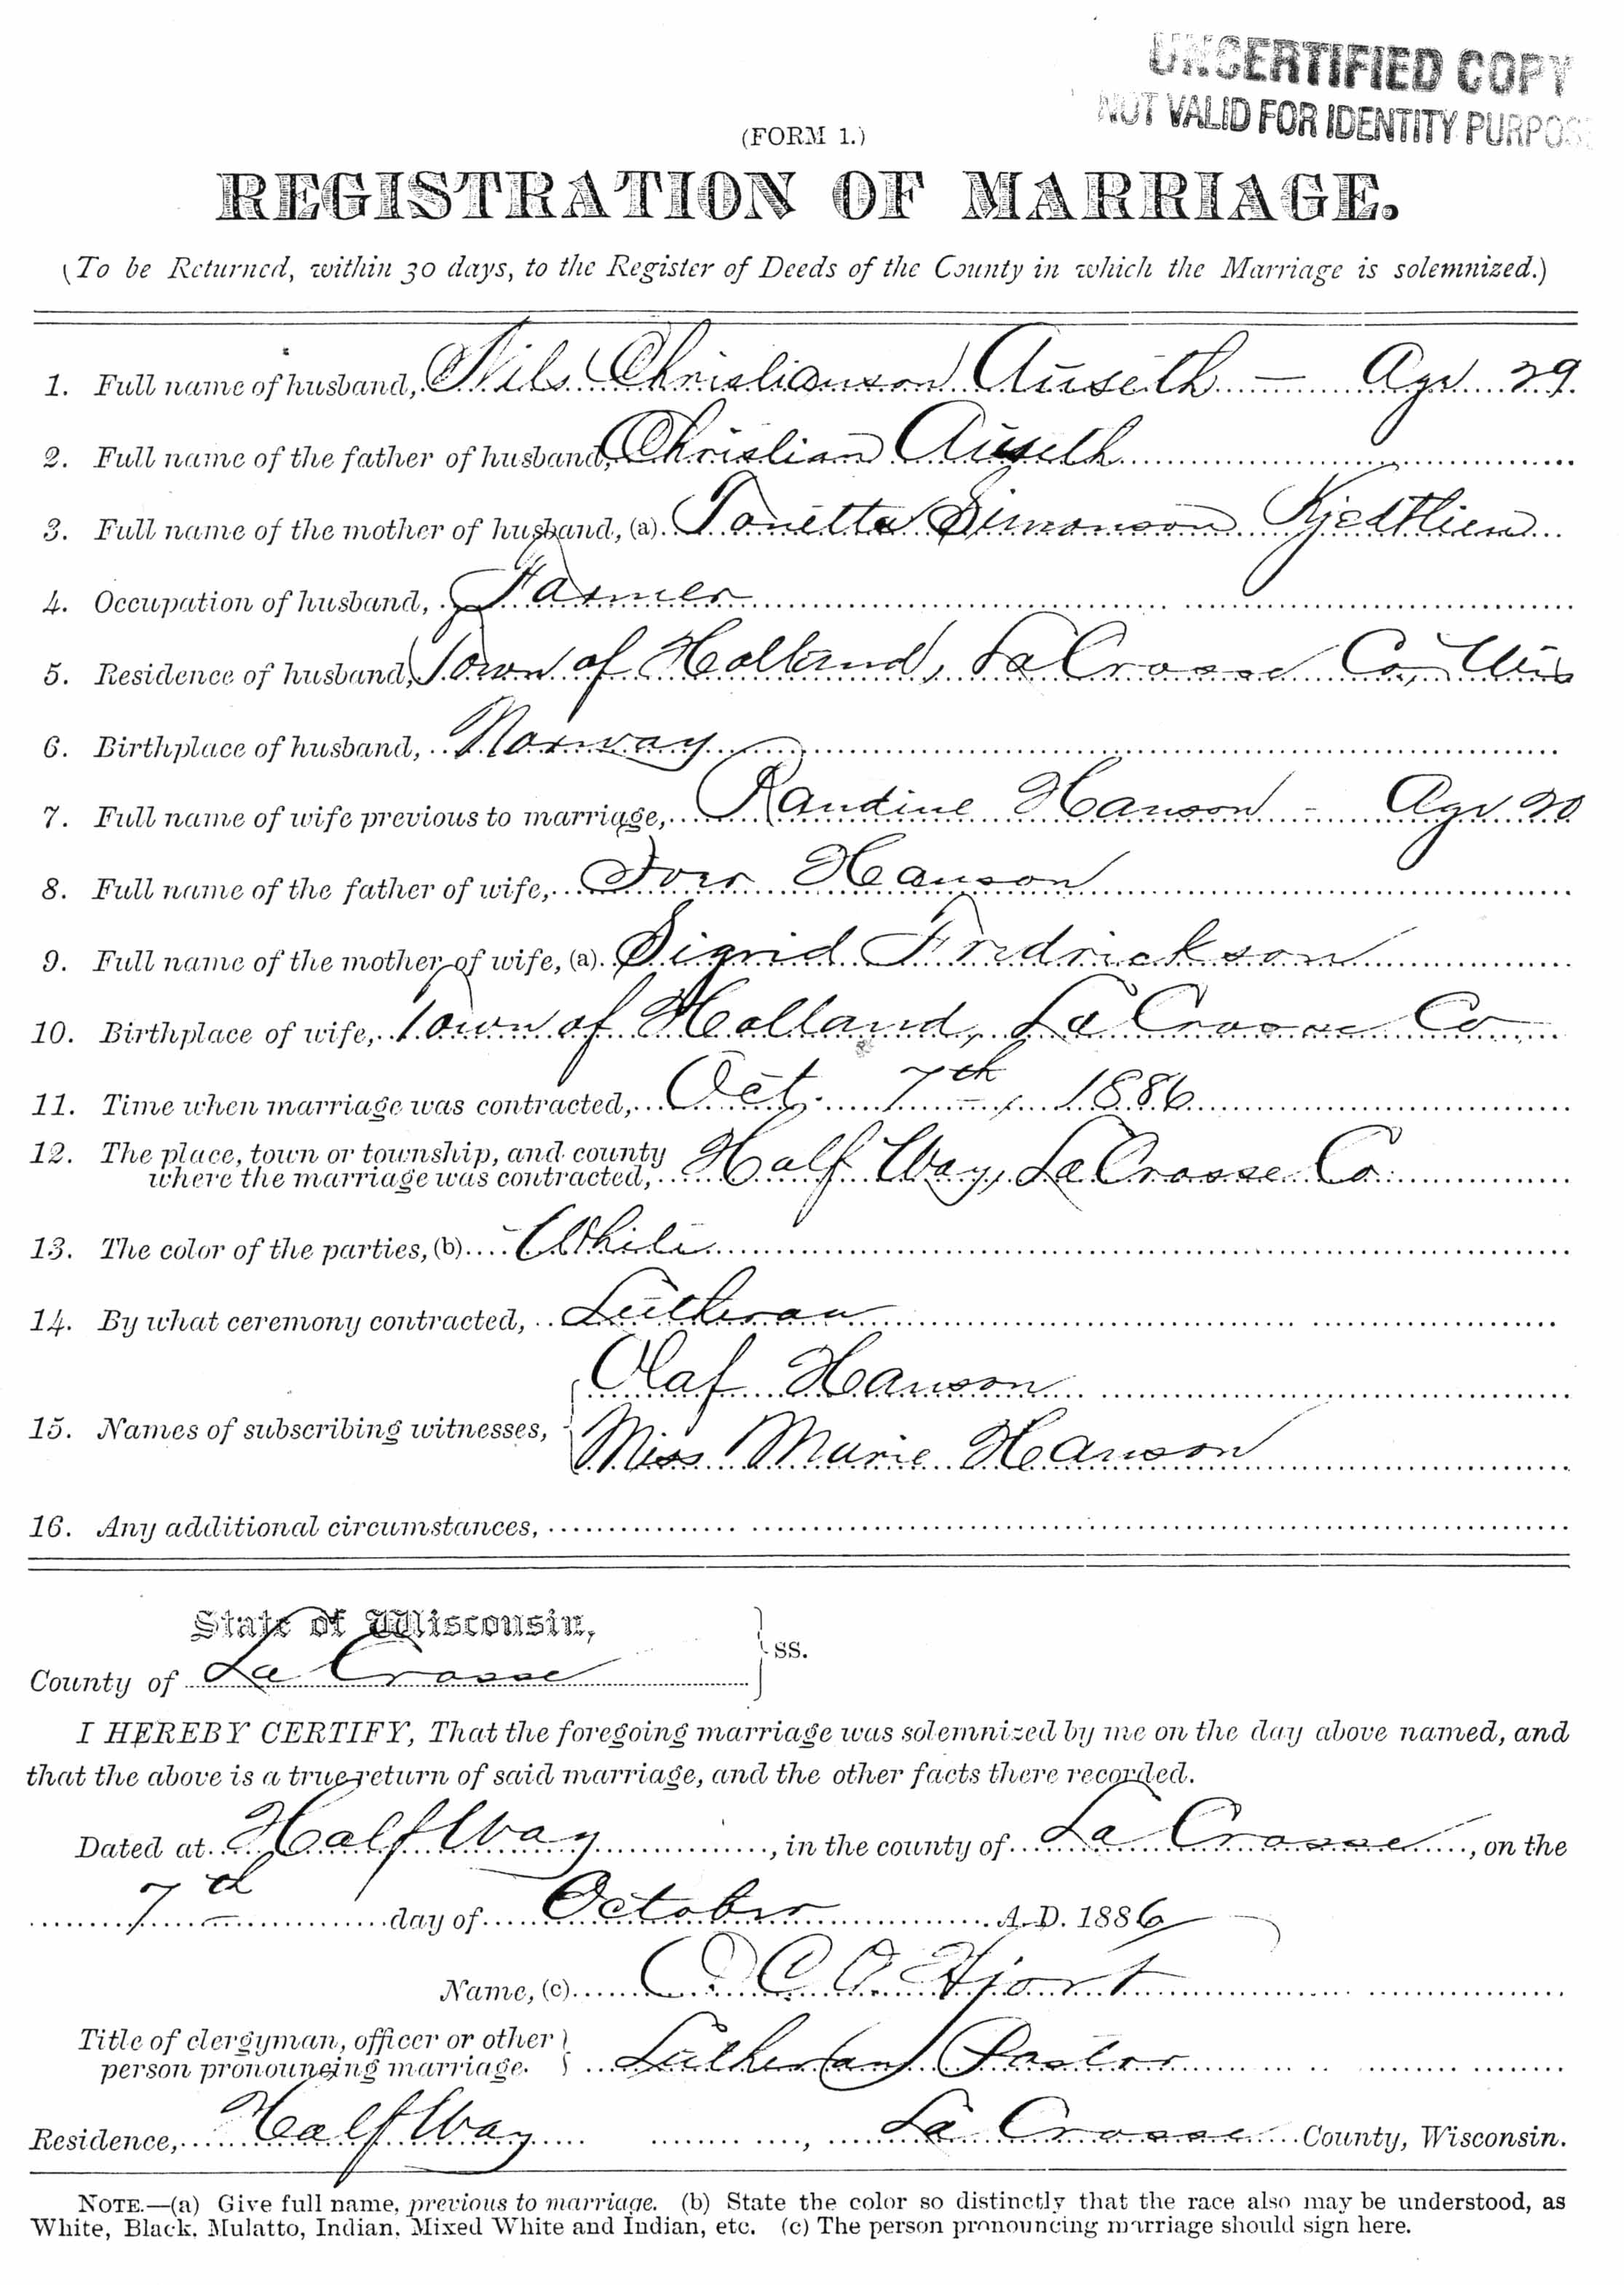 UNCERTIFIED COPY
NOT VALID FOR IDENTITY PURPOS
(FORM 1.)
REGISTRATION OF MARRIAGE.
(To be Returned, within 30 days, to the Register of Deeds of the County in which the Marriage is solemnized.)
1. Full name of husband, Nils (Christianson) Auseth — Age 29
2. Full name of the father of husband, Christian Auseth
3. Full name of the mother of husband, (a) Tonetta Simonson
4. Occupation of husband, Farmer
5. Residence of husband, Town of Holland, La Crosse Co., Wis
6. Birthplace of husband, Norway
7. Full name of wife previous to marriage, Randine Hanson - Age 20
8. Full name of the father of wife, Iver Hanson
9. Full name of the mother of wife, (a) Sigrid Fredrickson
10. Birthplace of wife, Town of Holland, La Crosse Co
11. Time when marriage was contracted, Oct. 7th, 1886
12. The place, town or township, and county
where the marriage was contracted, Half Way, La Crosse Co.
13. The color of the parties, (b) White
14. By what ceremony contracted, Lutheran
Olaf Hanson
15. Names of subscribing witnesses,
Miss Marie Hanson
16. Any additional circumstances,
State of Wisconsin,
ss.
County of La Crosse
I HEREBY CERTIFY, That the foregoing marriage was solemnized by me on the day above named, and
that the above is a true return of said marriage, and the other facts there recorded.
Dated at Half Way, in the county of La Crosse, on the
7th day of October A. D. 1886
Name, (c) C. O. Hjort
Title of clergyman, officer or other
person pronouncing marriage. Lutheran Pastor
Residence, Half Way, La Crosse County, Wisconsin.
NOTE.—(a) Give full name, previous to marriage. (b) State the color so distinctly that the race also may be understood, as
White, Black, Mulatto, Indian, Mixed White and Indian, etc. (c) The person pronouncing marriage should sign here.